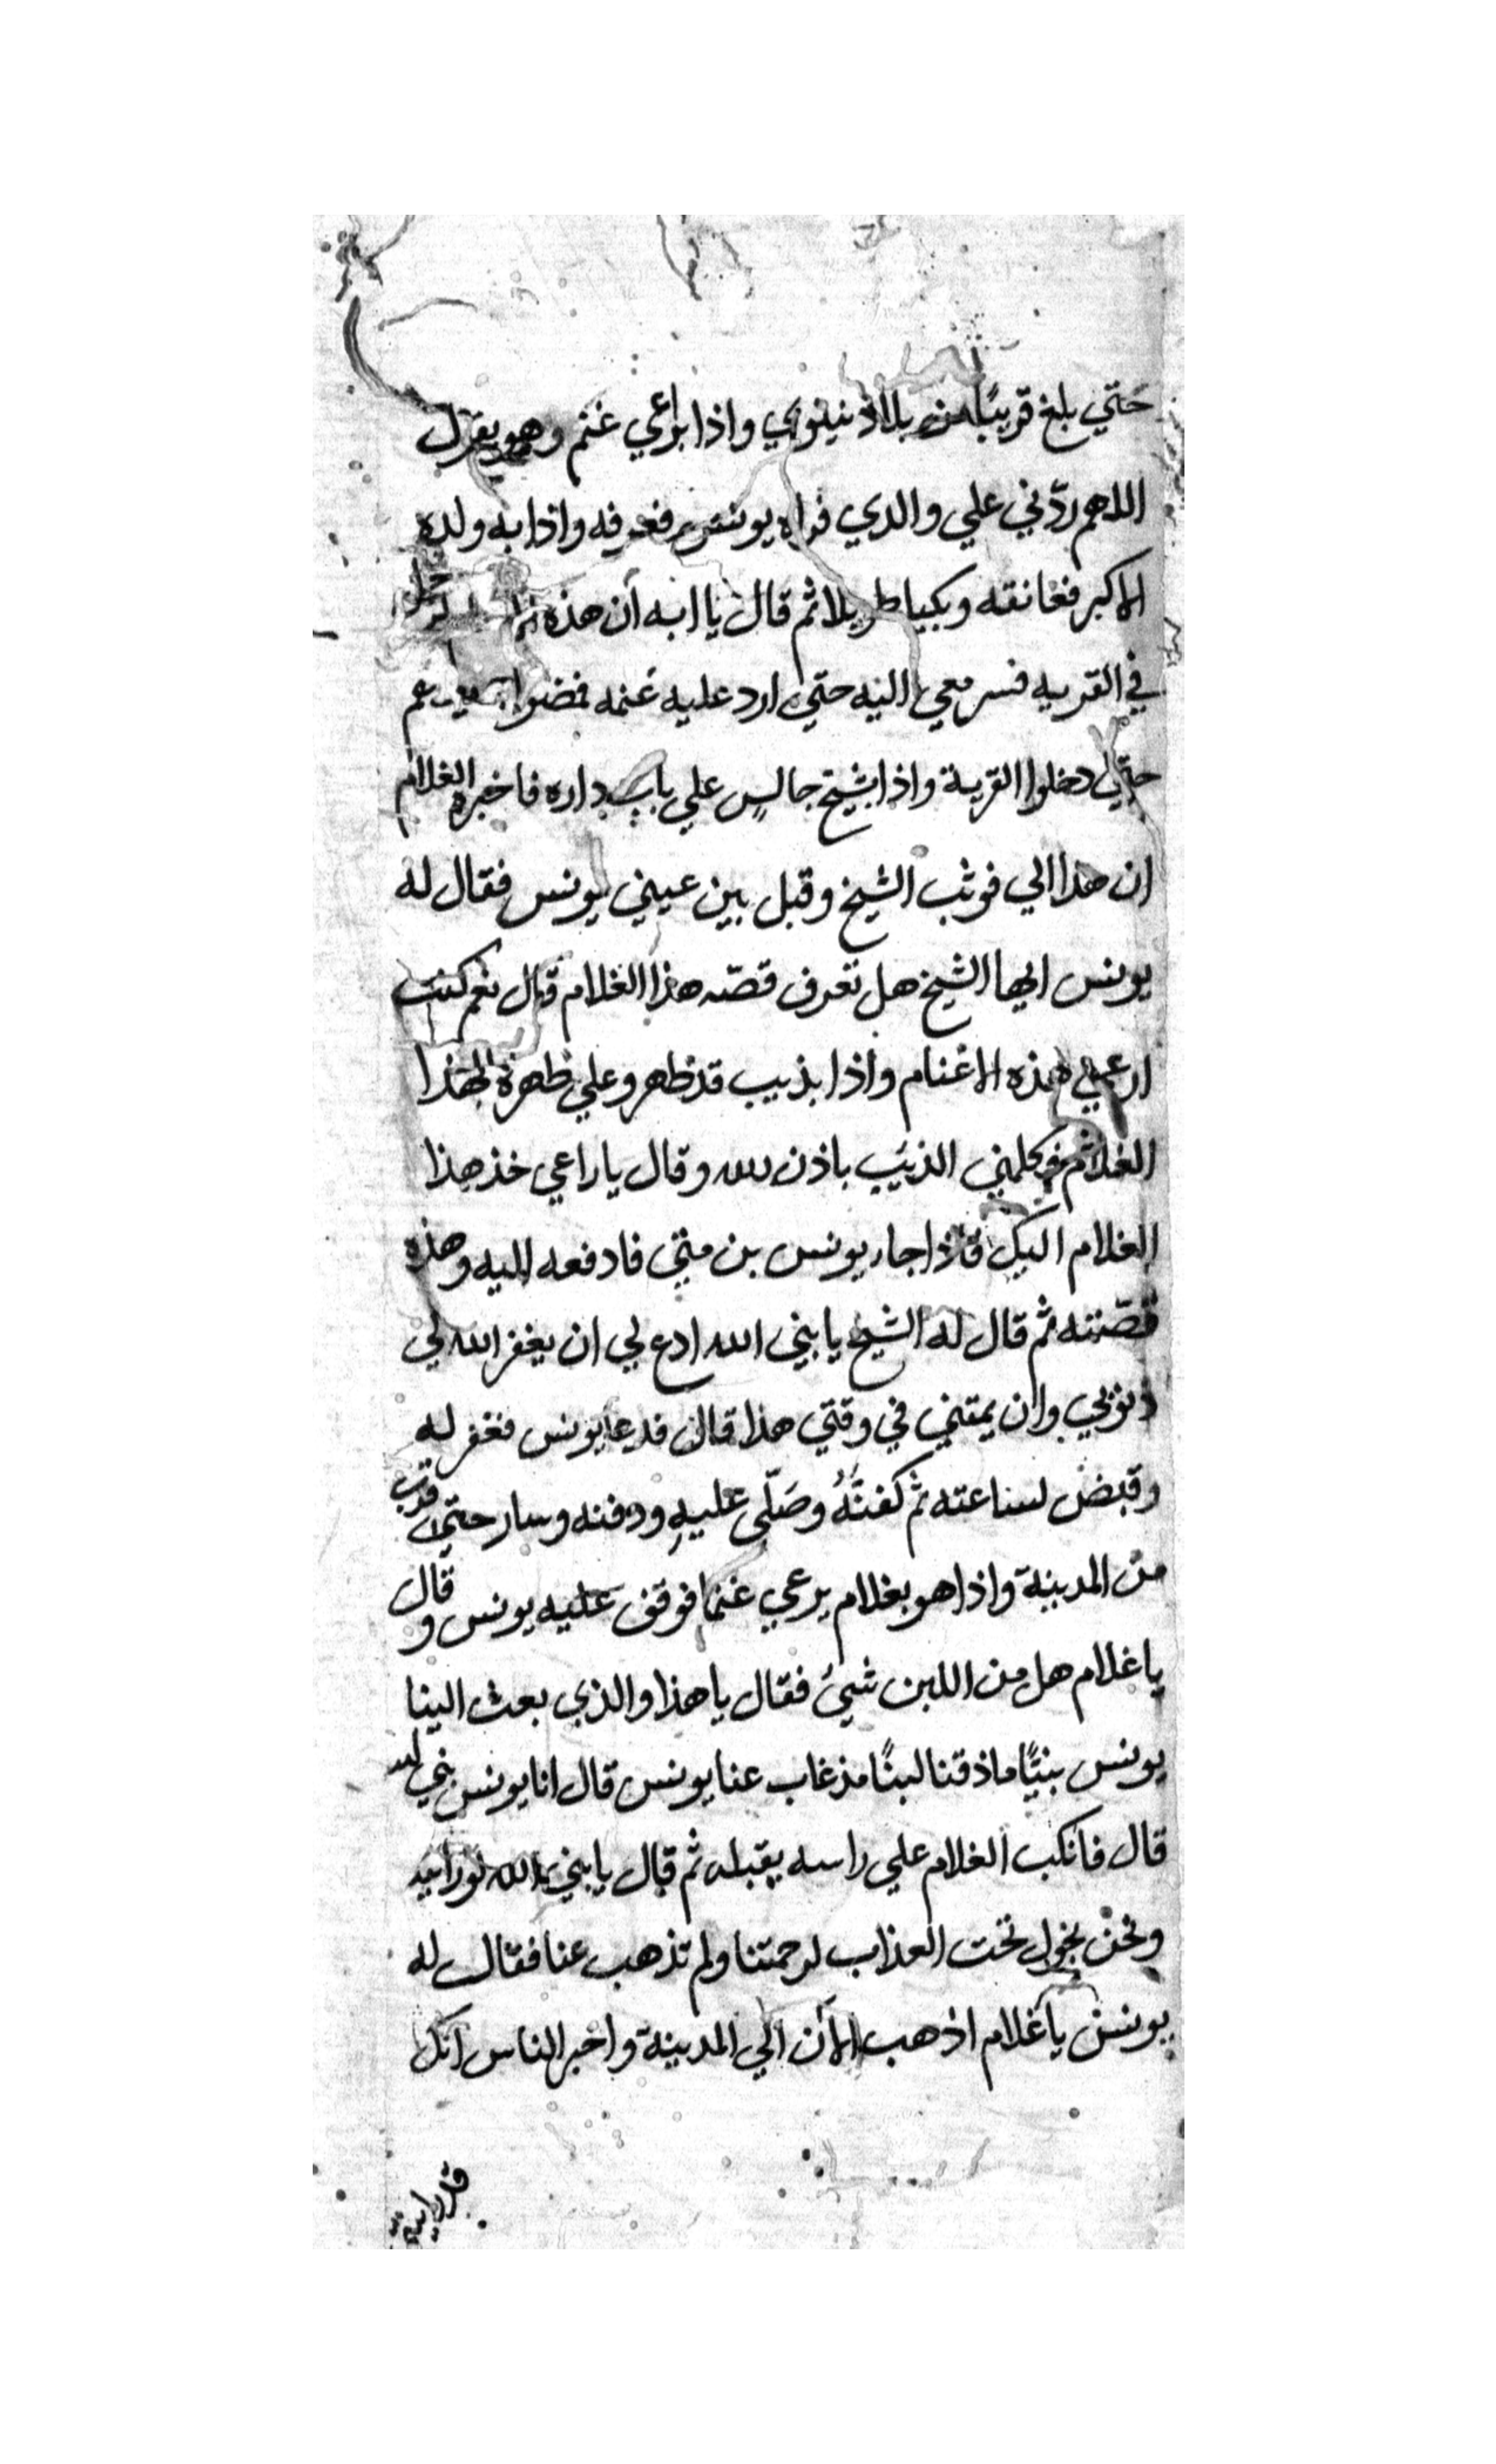 حتي بلغ قريبًا من بلاد نينوي واذا براعي غنم وهو يقول
اللاهم ردّني علي والدي فراه يونس فعرفه واذا به ولده
الاكبر فعانقه وبكيا طويلا ثم قال يا ابه ان هذه لرجل
في القريه فسر معي اليه حتي ارد عليه غنمه فمضوا
حتي دخلوا القرية واذا بشيخ جالس علي باب داره فاخبره الغلام
ان هذا ابي فوثب الشيخ وقبل بين عيني يونس فقال له
يونس ايها الشيخ هل تعرف قصّه هذا الغلام قال نعم كنت
ارعي هذه الاغنام واذا بذيب قد ظهر وعلي ظهره هذا
الغلام فكلمني الذيب باذن الله وقال يا راعي خذ هذا
الغلام اليك فاذا جاء يونس بن متي فادفعه اليه وهذه
قصّته ثم قال له الشيخ يا نبي الله ادع لي ان يغفر الله لي
ذنوبي وان يمتني في وقتي هذا قال فدعا يونس فغفر له
وقبض لساعته ثم كفنَهُ وصَلّى عليهِ ودفنه وسار حتي قرب
من المدينة واذا هو بغلام يرعي غنما فوقف عليه يونس وقال
يا غلام هل من اللبن شيئ فقال يا هذا والذي بعث الينا
يونس نبيًّا ما ذقنا لبنًا مذ غاب عنا يونس قال انا يونس نبي الله
قال فانكب الغلام علي راسه يقبله ثم قال يا نبي الله لو رايتنا
ونحن نجول تحت العذاب لرحمتنا ولم تذهب عنا فقال له
يونس يا غلام اذهب الآن الي المدينة واخبر الناس انك
قد رايت